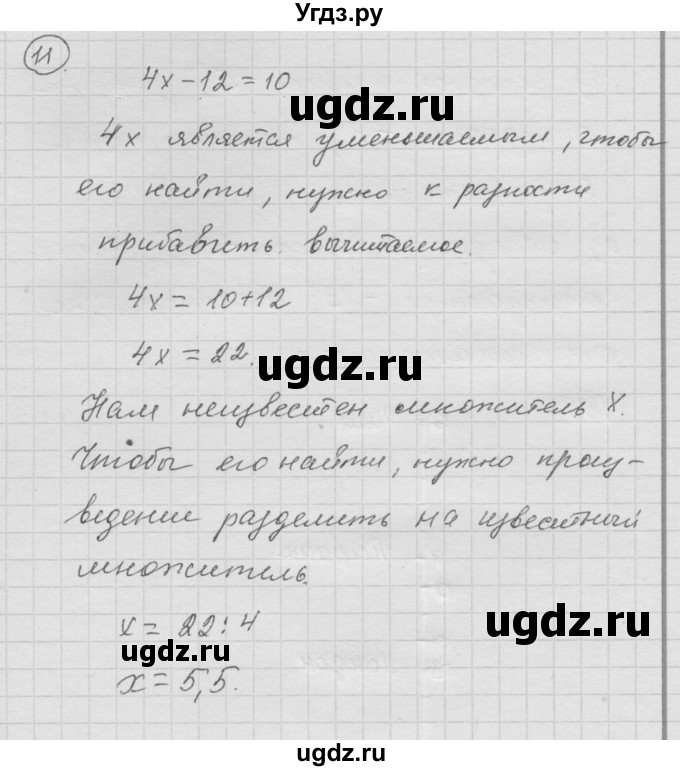 Угдз.ру
11
4x − 12 = 10
ugdz.ru
4x является уменьшаемым, чтобы
его найти, нужно к разности
прибавить вычитаемое.
4x = 10+12
4x = 22.
ugdz.ru
Нам неизвестен множитель x.
Чтобы его найти, нужно произ-
ведение разделить на известный
множитель.
ugdz.ru
x = 22:4
ugdz.ru
x = 5,5.
ugdz.ru